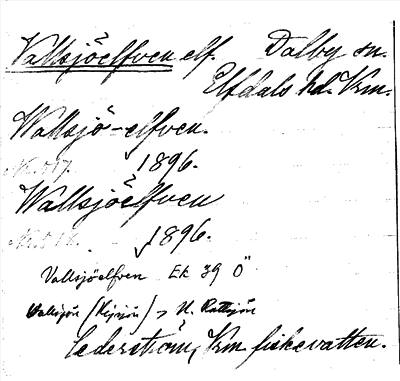 Vallsjöelfven elf. Dalby sn.
Elfdals hd. Vrm.
Wallsjö-elfven.
1896.
Wallsjöelfven
1896.
Vallsjöelfven Ek 39 Ö
Vallsjön (Kijsjön) > N. Rattsjön
Cederström, Vrm fiskevatten.